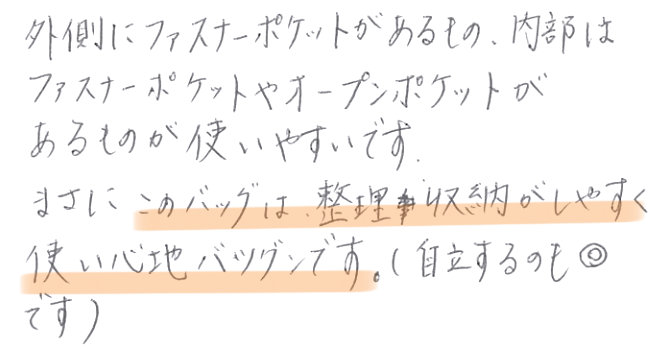 外側にファスナーポケットがあるもの、内部は
ファスナーポケットやオープンポケットが
あるものが使いやすいです.
まさにこのバッグは、整理収納がしやすく
使い心地バツグンです。(自立するのも◎
です)